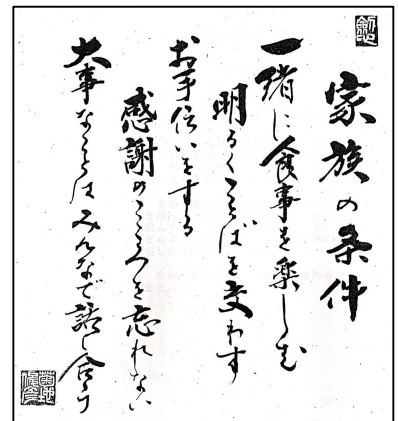 家族の条件
一緒に食事を楽しむ
明るくことばを交わす
お手伝いをする
感謝のこころを忘れない
大事なことはみんなで話し合う